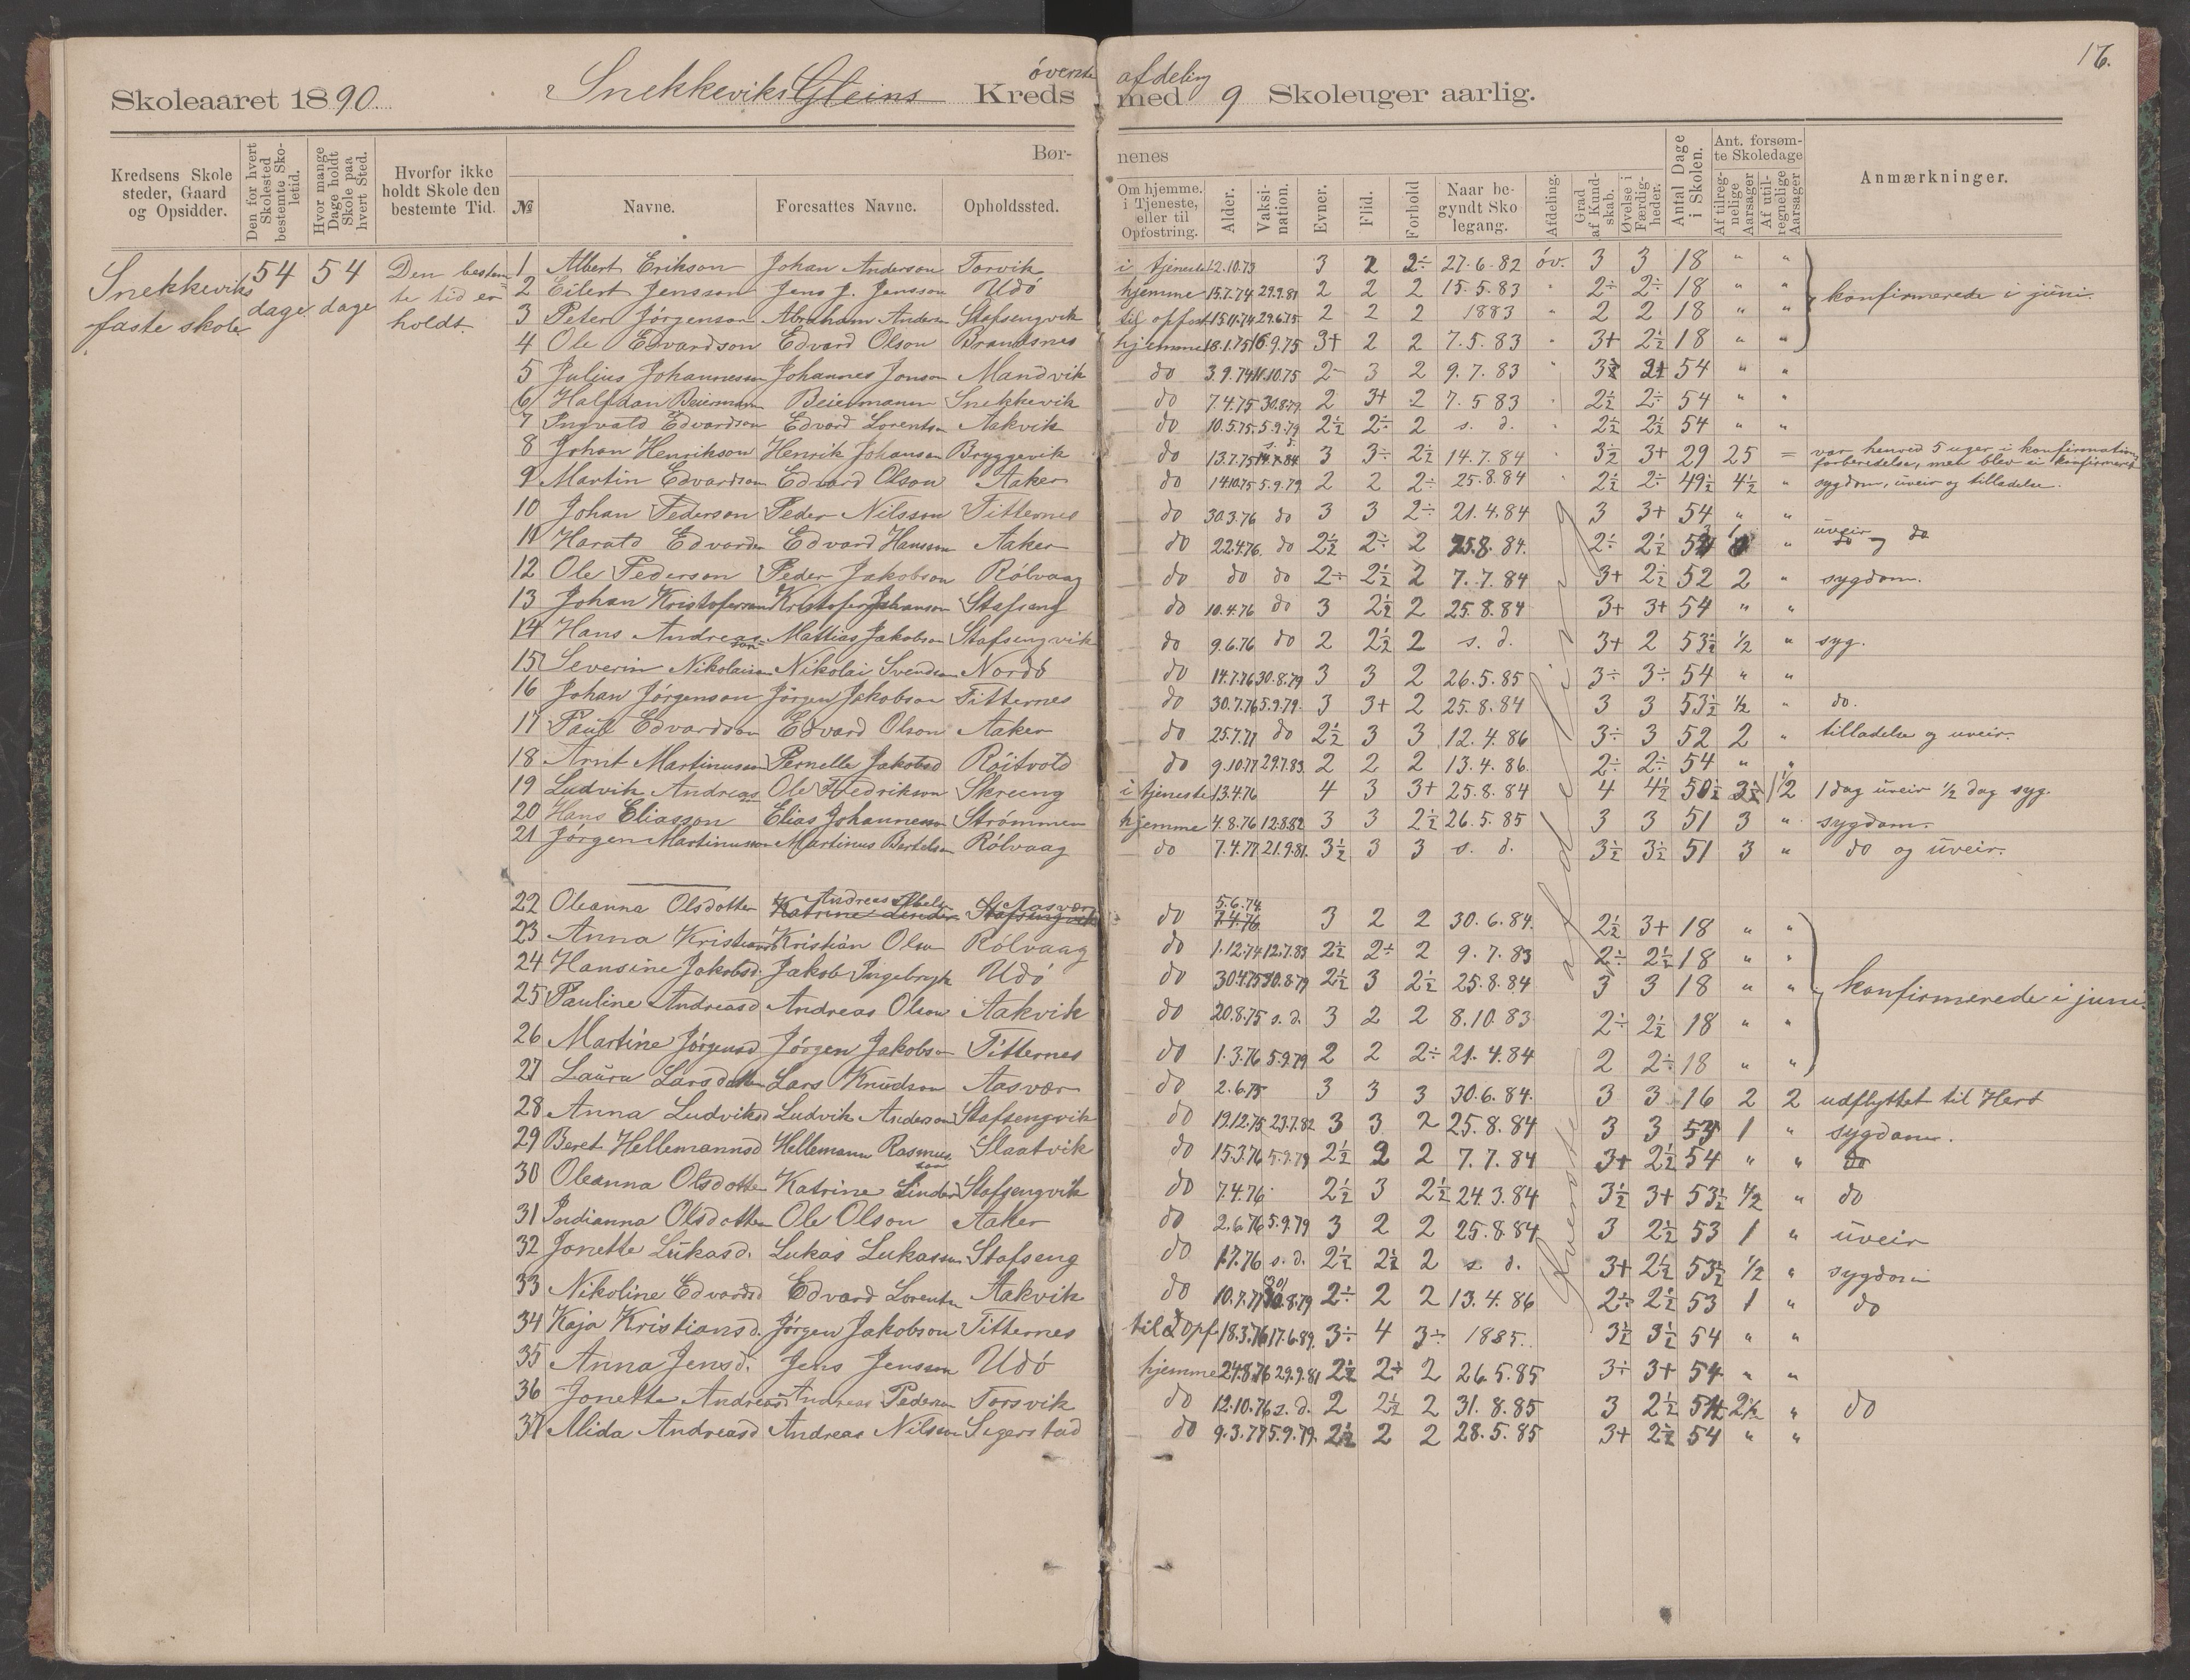 16.
Skoleaaret 1890. Snekkeviks Gleins øverste Kreds afdeling med 9 Skoleuger aarlig.
Kredsens Skolesteder, Gaard og Opsidder. Den for hvert Skolested bestemte Skoletid. Hvor mange Dage holdt Skole paa hvert Sted. Hvorfor ikke holdt Skole den bestemte Tid. Børnenes Antal Dage i Skolen. Ant. forsømte Skoledage Anmærkninger.
№ Navne. Foresattes Navne. Opholdssted. Om hjemme, i Tjeneste, eller til Opfostring. Alder. Vaksination. Evner. Flid. Forhold Naar begyndt Skolegang. Afdeling. Grad af Kundskab. Øvelse i Færdigheder. Af tilregnelige Aarsager Af utilregnelige Aarsager
Snekkeviks faste skole 54 dage 54 dage Den bestemte tid er holdt
1 Albert Erikson Johan Anderson Torvik i tjeneste 12.10.73 3 2 2÷ 27.6.82 øv. 3 3 18 " "
2 Eilert Jensson Jens J. Jensson Udø hjemme 15.7.74 29.9.81 2 2 2 15.5.83 " 2÷ 2÷ 18 " " konfirmerede i juni.
3 Peter Jørgenson Abraham Anders Stafsengvik til opfost 15.11.74 29.6.75 2 2 2 1883 " 2 2 18 " "
4 Ole Edvardson Edvard Olson Brandsnes hjemme 18.1.75 16.9.75 3+ 2 2 7.5.83 " 3+ 2½ 18 " "
5 Julius Johannesson Johannes Jonson Mandvik do 3.9.74 11.10.75 2÷ 3 2 9.7.83 " 54 " "
6 Halfdan Beiermann Beiermann Snekkevik do 7.4.75 30.8.79 2 3+ 2 7.5.83 " 2½ 2÷ 54 " "
7 Ingvald Edvardson Edvard Lorents Aakvik do 10.5.75 5.9.79 2½ 2÷ 2 s. d. " 2½ 2½ 54 " "
8 Johan Henrikson Henrik Johanson Bryggevik do 13.7.75 s. d. 3 3÷ 2½ 14.7.84 " 3½ 3+ 29 25 = var henved 5 uger i konfirmationsforberedelse, men blev ei konfirmeret
9 Martin Edvardson Edvard Olson Aaker do 14.10.75 5.9.79 2 2 2÷ 25.8.84 " 2½ 2÷ 49½ 4½ " sygdom, uveir og tilladelse.
10 Johan Pederson Peder Nilsson Titternes do 30.3.76 do 3 3 2÷ 21.4.84 3 3+ 54 " "
11 Harald Edvards Edvard Hansson Aaker do 22.4.76 do 2½ 2÷ 2 25.8.84. 2÷ 2½ 53 1 " uveir og do
12 Ole Pederson Peder Jakobson Rølvaag do do do 2÷ 2½ 2 7.7.84 3+ 2½ 52 2 " sygdom.
13 Johan Kristoferson Kristofer Johanson Stafseng do 10.4.76 do 3 2½ 2 25.8.84 3+ 3+ 54 " "
14 Hans Andreasson Mattias Jakobson Stafsengvik do 9.6.76 do 2 2½ 2 s. d. 3+ 2 53½ ½ " syg.
15 Severin Nikolaison Nikolai Svendson Nordø do 14.7.76 30.8.79 3 3 2 26.5.85 3÷ 3÷ 54 " "
16 Johan Jørgenson Jørgen Jakobson Titternes do 30.7.76 5.9.79. 3 3+ 2 25.8.84 3 3 53½ ½ " do.
17 Paul Edvardson Edvard Olson Aaker do 25.7.77 do 2½ 3 3 12.4.86 3÷ 3 52 2 " tilladelse og uveir.
18 Arnt Martinusson Pernelle Jakobsd Røitvold do 9.10.77 29.7.83. 2 2 2 13.4.86. 2÷ 2÷ 54 " "
19 Ludvik Andreas Ole Fredrikson Skreeng i tjeneste 13.4.76 4 3 3+ 25.8.84 4 4½ 50½ 1½ 1 dag uveir ½ dag syg.
20 Hans Eliasson Elias Johannesson Strømmen hjemme 4.8.76 12.8.82 3 3 2½ 26.5.85 3 3 51 3 " sygdom.
21 Jørgen Martinusson Martinus Bertelsen Rølvaag do 7.4.77 21.9.81. 3½ 3 3 s. d. 3½ 3½ 51 3 " do og uveir.
22 Oleanna Olsdotter Katrine Linder Andreas Stafsengvik Aasvær do 5.6.74 7.4.76 3 2 2 30.6.84. 2½ 3+ 18 " "
23 Anna Kristiansd Kristian Olson Rølvaag do 1.12.74 12.7.83 2½ 2÷ 2 9.7.83 2÷ 2½ 18 " "
24 Hansine Jakobsd. Jakob Ingebrigts Udø do 30.4.75 30.8.79 2½ 3 2½ 25.8.84 3 3 18 " " konfirmerede i juni.
25 Pauline Andreasd Andreas Olson Aakvik do 20.8.75 s. d. 3 2 2 8.10.83 2÷ 2½ 18 " "
26 Martine Jørgensd Jørgen Jakobson Titternes do 1.3.76 5.9.79 2 2 2÷ 21.4.84 2 2÷ 18 " "
27 Laura Larsdatter Lars Knudson Aasvær do 2.6.75 3 3 3 30.6.84. 3 3 16 2 2 udflyttet til Herø
28 Anna Ludviksd Ludvik Anderson Stafsengvik do 19.12.75 23.7.82 3 3 2 25.8.84 3 3 53 1 " sygdom.
29 Beret Hellemannsd Hellemann Rasmusson Slaatvik do 15.3.76 5.9.79 2½ 2 2 7.7.84 3+ 2½ 54 " " do
30 Oleanna Olsdotter Katrine Linder Stafsengvik do 7.4.76 2½ 3 2½ 24.3.84 3½ 3+ 53½ ½ " do
31 Indianna Olsdotter Ole Olson Aaker do 2.6.76 5.9.79 3 2 2 25.8.84 3 2½ 53 1 " uveir
32 Jonette Lukasd. Lukas Lukasson Stafseng do 1.7.76 s. d. 2½ 2½ 2 s. d. 3+ 2½ 53½ ½ " sygdom
33 Nikoline Edvardsd Edvard Lorents Aakvik do 10.7.77 30.8.79 2÷ 2 2 13.4.86 2÷ 2½ 53 1 " do
34 Kaja Kristiansd. Jørgen Jakobson Titternes til opf 18.3.76 17.6.89. 3÷ 4 3÷ 1885. 3½ 3½ 54 " "
35 Anna Jensd. Jens Jensson Udø hjemme 24.8.76 29.9.81 2½ 2+ 2 26.5.85 3÷ 3+ 54 " "
36 Jonette Andreasd Andreas Pederson Torsvik do 12.10.76 s. d. 2 2½ 2 31.8.85 3 2½ 51½ 2½ " do
37 Alida Andreasd Andreas Nilsson Segerstad do 9.3.77 5.9.79. 2½ 2 2 28.5.85 3+ 2½ 54 " "
øverste afdeling